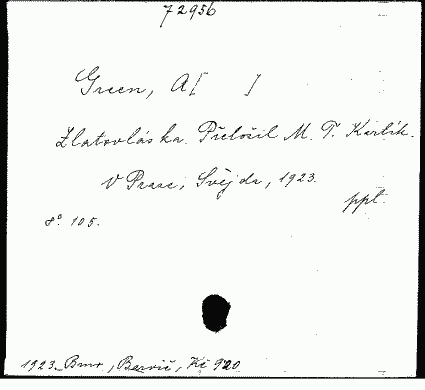 72956
Green, A[ ]
Zlatovláska. Přeložil M. T. Karlík.
V Praze, Švejda, 1923.
ppt.
8° 105.
1923. Brno, Barvič, Kč 920